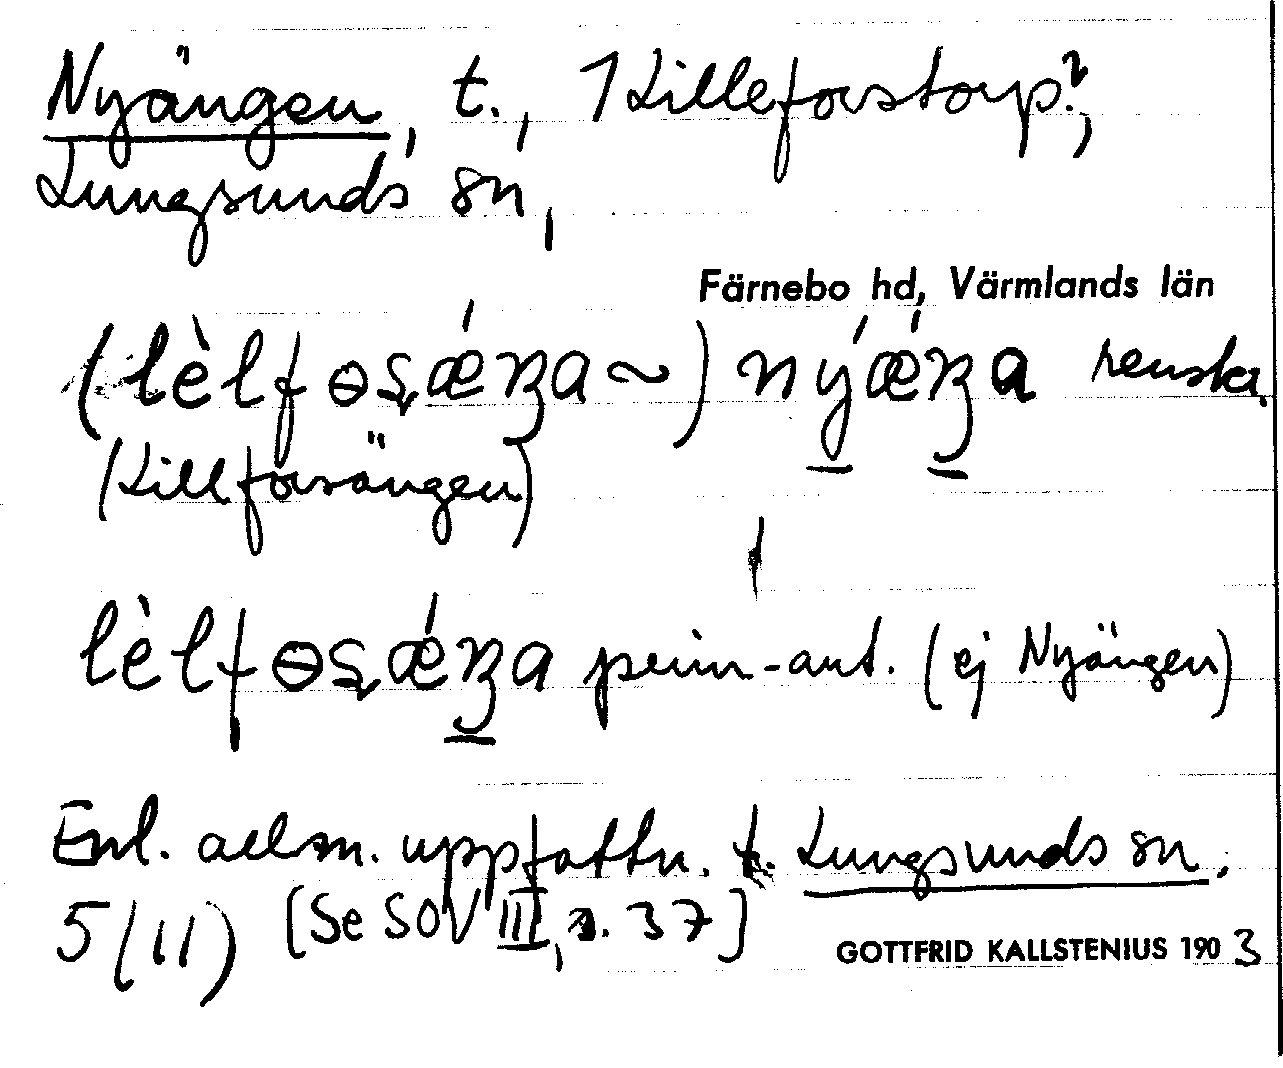 Nyängen, t., 1 Lilleforstorp?,
Lungsunds sn,
Färnebo hd, Värmlands län
(lèlfɵʂǽŋa ~) nýǽŋa
(Lillforsängen)
lèlfɵʂǽŋa (ej Nyängen)
Enl. allm. uppfattn. t. Lungsunds sn.
5 (11) [Se SOV III, s. 37]
GOTTFRID KALLSTENIUS 1903